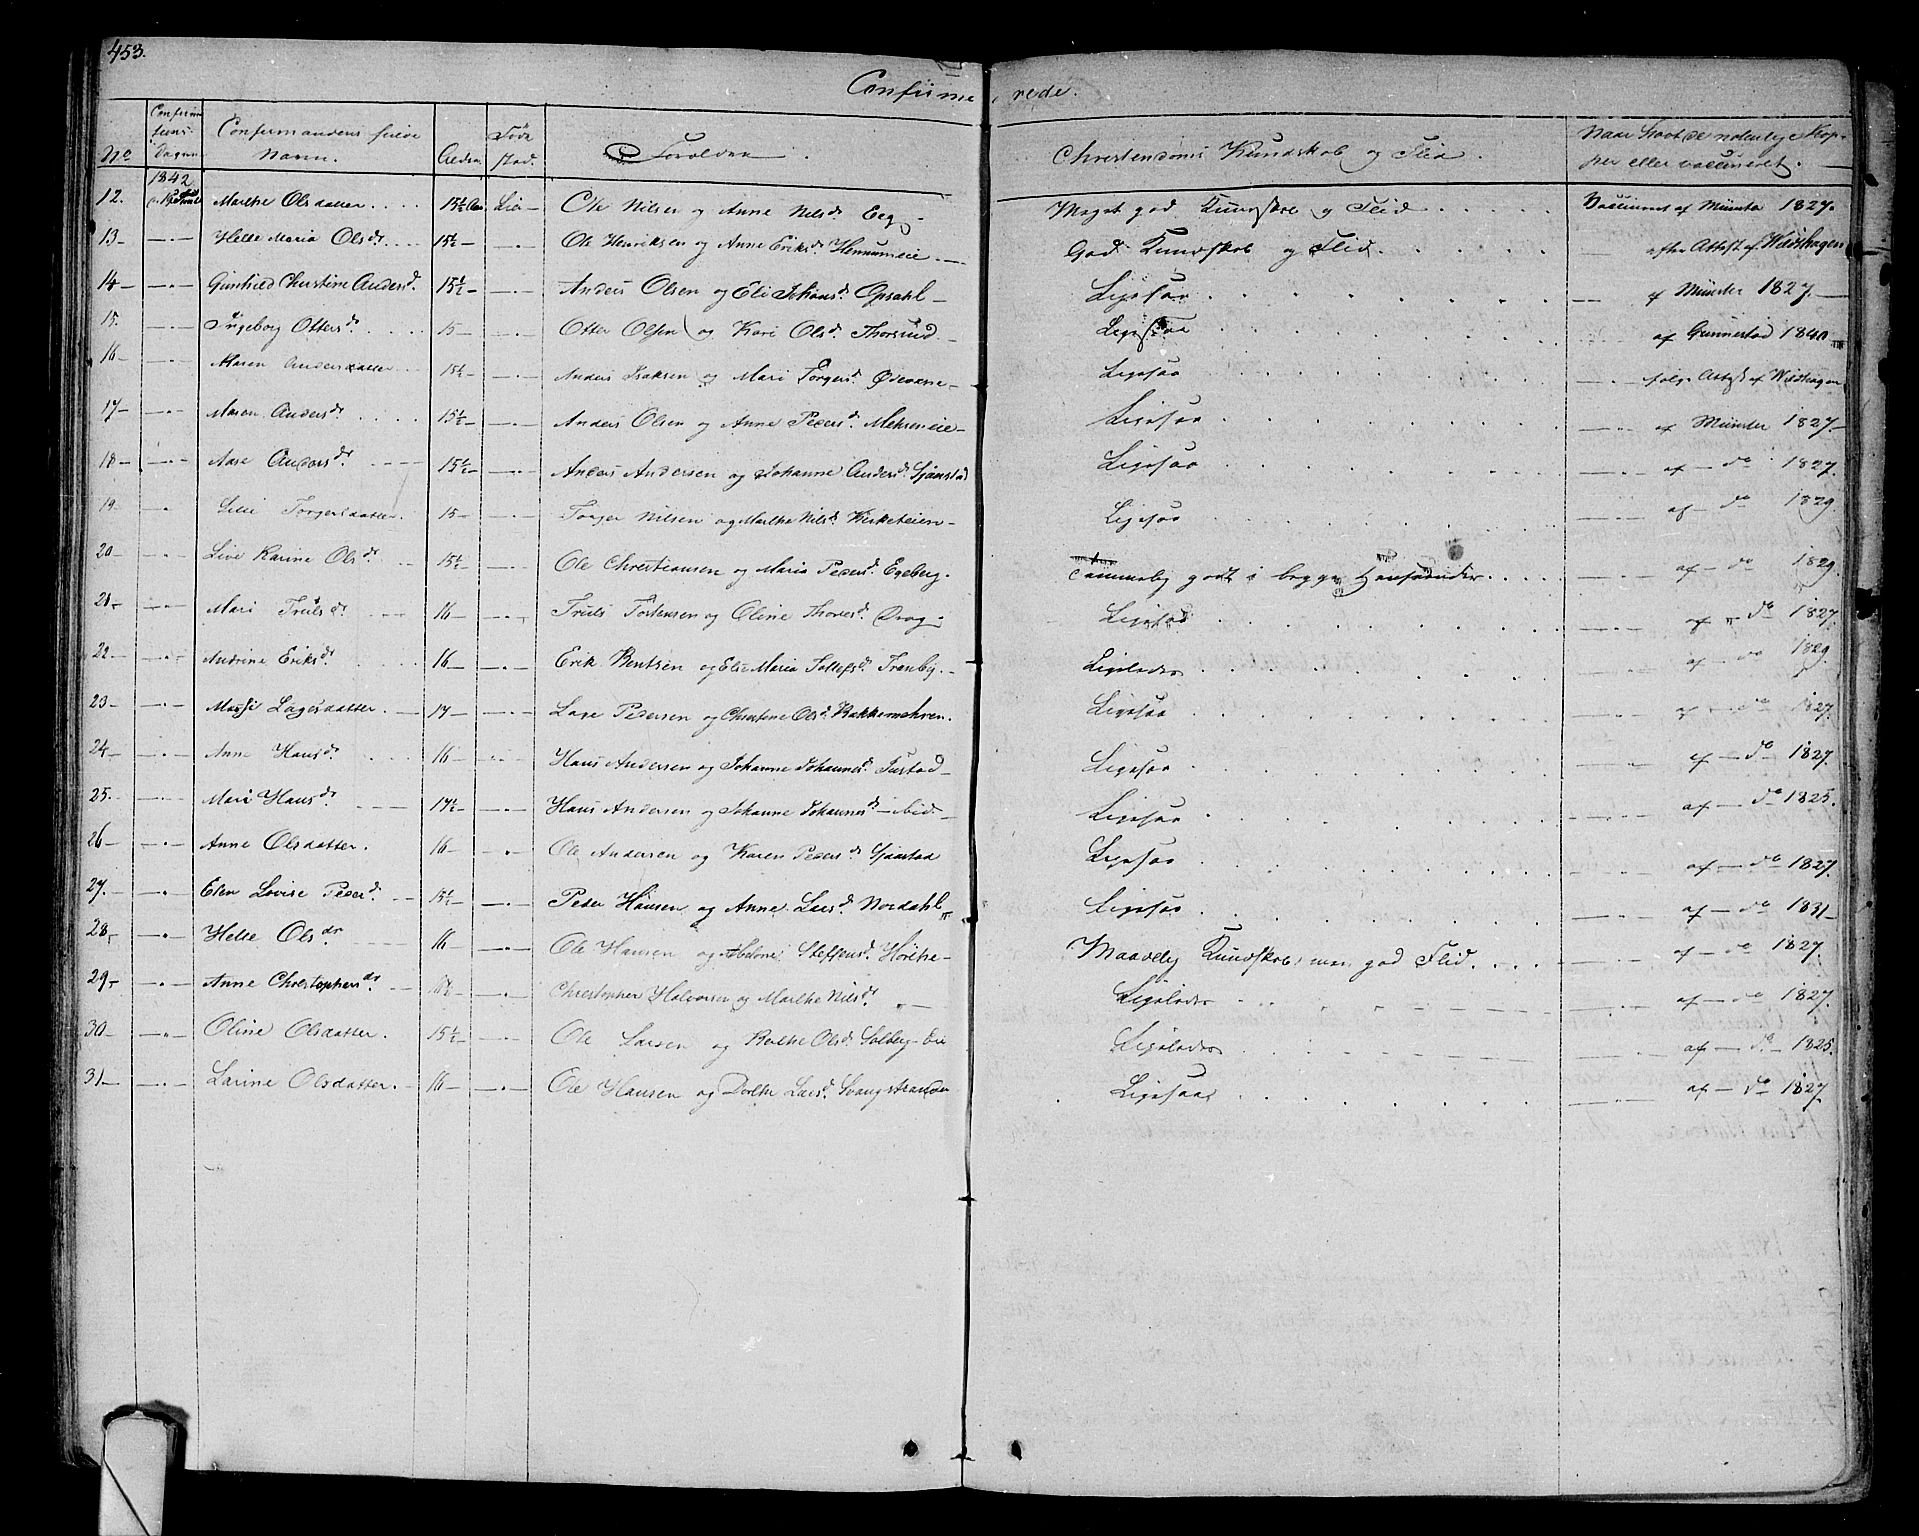 453.
Confirme rede.
No Confirmations Dagen Confirmandens fulde Navn. Alder Føde stad. Forældre. Christendoms Kundskab og Flid. Naar havt de naturlige Kopper eller vaccineret.
1842
12. Marthe Olsdatter 15½ Aar Lier Ole Nilsen og Anne Nilsd. Eeg Meget god Kundskab og Flid Vaccineret af Münster 1827.
13 Helle Maria Olsdr. 15½ Ole Henriksen og Anne Eriksd. Hennumeie God Kundskab og Flid efter Attest af Wildhagen
14 Gunhild Christine Andersd. 15½ Anders Olsen og Eli Johansd. Opsahl Ligesaa af Münster 1827.
15. Ingeborg Ottersdr. 15 Otter Olsen og Kari Olsd. Thorsrud Ligesaa af Gunnestad 1840
16 Maren Andersdatter 15½ Anders Isaksen og Mari Torgersd. Ødevarne Ligesaa følge Attest af Wildhagen
17 Maren Andersdr. 15½ Anders Olsen og Anne Pedersd. Mehreneie Ligesaa af Münster 1827
18 Aase Andersdr. 15½ Anders Andersen og Johanne Andersd. Sjæastad Ligesaa af do 1827.
19. Torgersdatter. 15 Torger Nilsen og Marthe Nilsd. Kirketeien Ligesaa af do 1829.
20 Live Karine Olsdr. 15½ Ole Christiansen og Maria Pedersd. Egeberg. Temmelig godt i begge Henseender af do 1829.
21 Mari Trulsdr. 16 Truls Torstensen og Oline Thoresd. Drog Ligesaa af do 1827.
22 Andrine Eriksdr. 16 Erik Bentsen og Eli Maria Tollefsd. Tranby. Ligeledes af do 1829.
23 Lagesdatter. 17 Lage Pedersen og Christine Olsd. Bakkemehren. Ligesaa af do 1827.
24 Anne Hansdr. 16 Hans Andersen og Johanne Johannesd. Tustad Ligesaa af do 1827.
25. Mari Hansdr. 17½ Hans Andersen og Johanne Johannesd. ibid. Ligesaa af do 1825.
26 Anne Olsdatter. 16 Ole Andersen og Karen Pedersd. Sjæastad Ligesaa af do 1827.
27. Elen Lovise Pedersd. 15½ Peder Hansen og Anne Larsd. Nordahl Ligesaa af do 1831
28. Helle Olsdr 16 Ole Hansen og Abelone Steffensd. Hørthe Maadelig Kundskab, men god Flid. af do 1827.
29. Anne Christophersdr. Christopher Halvorsen og Marthe Nilsd. Ligeledes af do 1827.
30 Oline Olsdatter. 15½ Ole Larsen og Berthe Olsd. Solberg eie Ligeledes af do 1825.
31 Larine Olsdatter. 16 Ole Hansen og Dorthe Larsd. Svangstranden Ligesaa af do 1827.